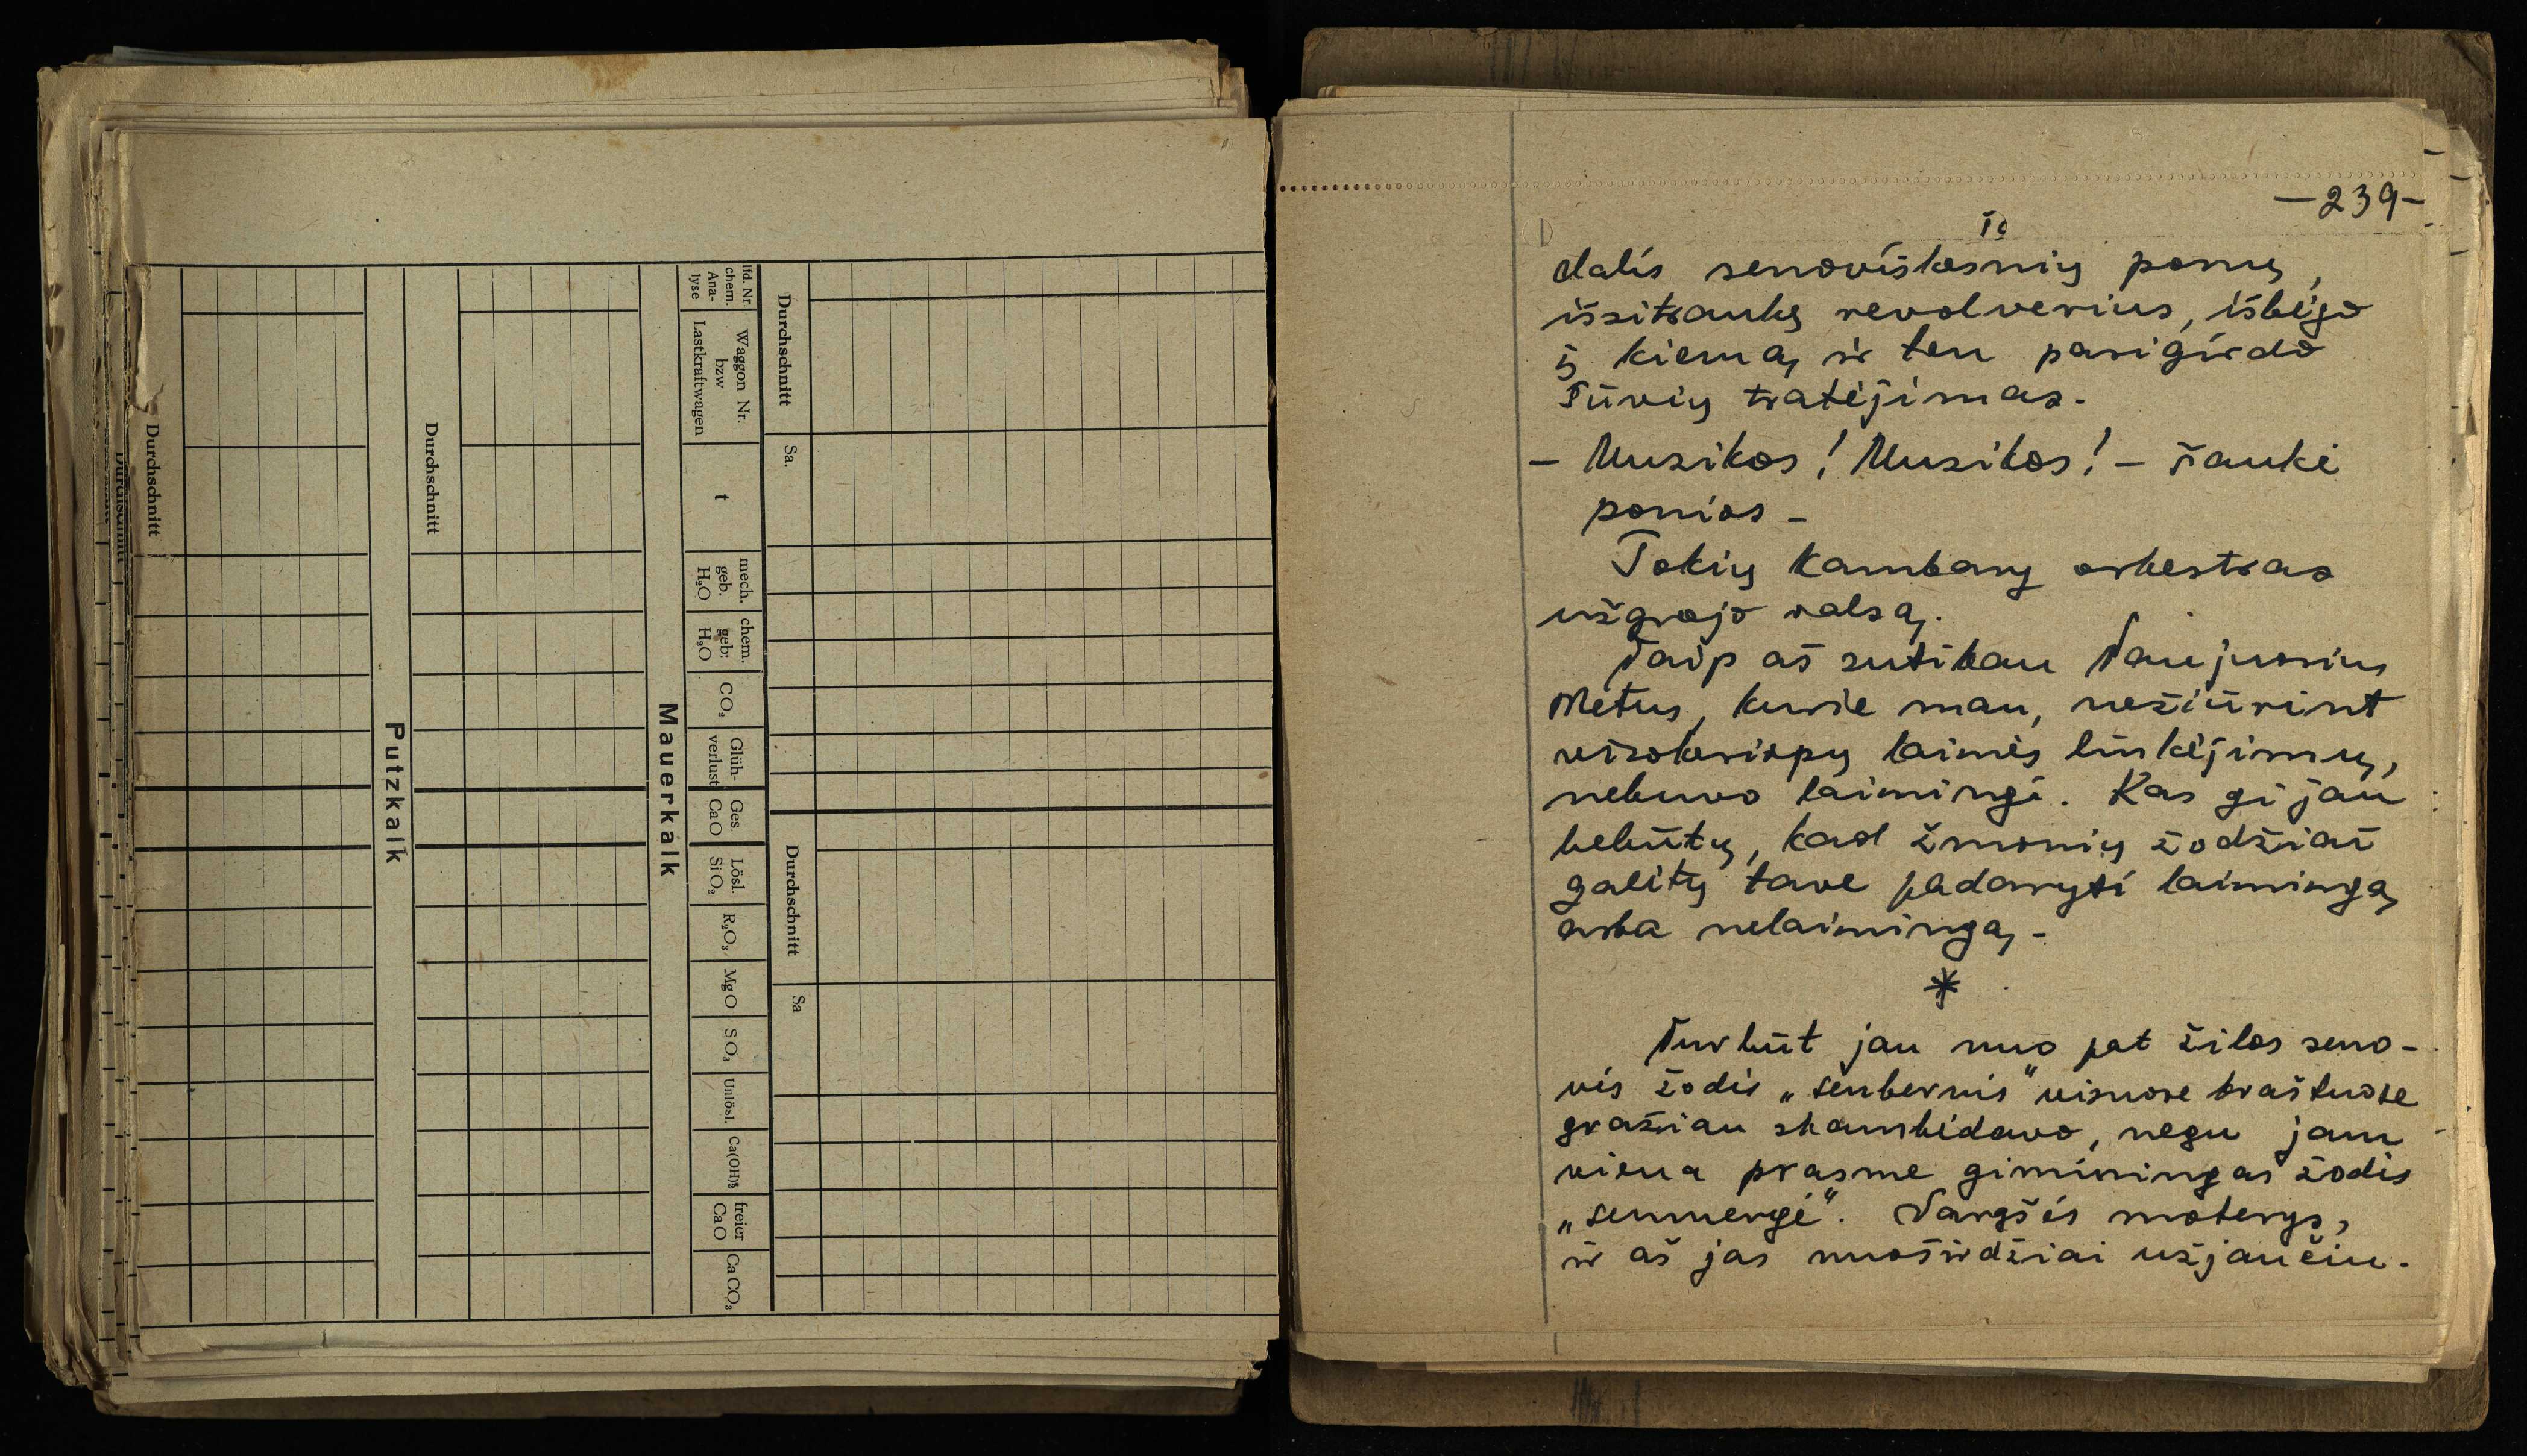 Durchschnitt
Putzkalk
Durchschnitt
Mauerkalk
lfd. Nr.
chem.
Ana-
lyse
Waggon Nr.
bzw
Lastkraftwagen
t
mech.
geb.
H₂O
chem.
geb:
H₂O
CO₂
Glüh-
verlust
Ges.
CaO
Lösl.
SiO₂
R₂O₃
MgO
SO₃
Unlösl.
Ca(OH)₂
freier
CaO
CaCO₃
Durchschnitt
Sa.
Durchschnitt
Sa
—239—
dalis senoviškesnių ponų,
išsitraukę revolverius, išbėgo
į kiemą ir ten pasigirdo
šūvių tratėjimas.
— Muzikos! Muzikos! — šaukė
ponios —
Tokių kambarų orkestras
užgrojo valsą.
Taip aš sutikau Naujuosius
Metus, kurie man, nežiūrint
visokeriopų laimės linkėjimų,
nebuvo laimingi. Kas gi jau
bebūtų, kad žmonių žodžiai
galėtų tave padaryti laimingą
arba nelaimingą.
*
Turbūt jau nuo pat žilos seno-
vės žodis „senbernis" visuose kraštuose
gražiau skambėdavo, negu jam
viena prasme giminingas žodis
„senmergė". Vargšės moterys,
ir aš jas nuoširdžiai užjaučiu.